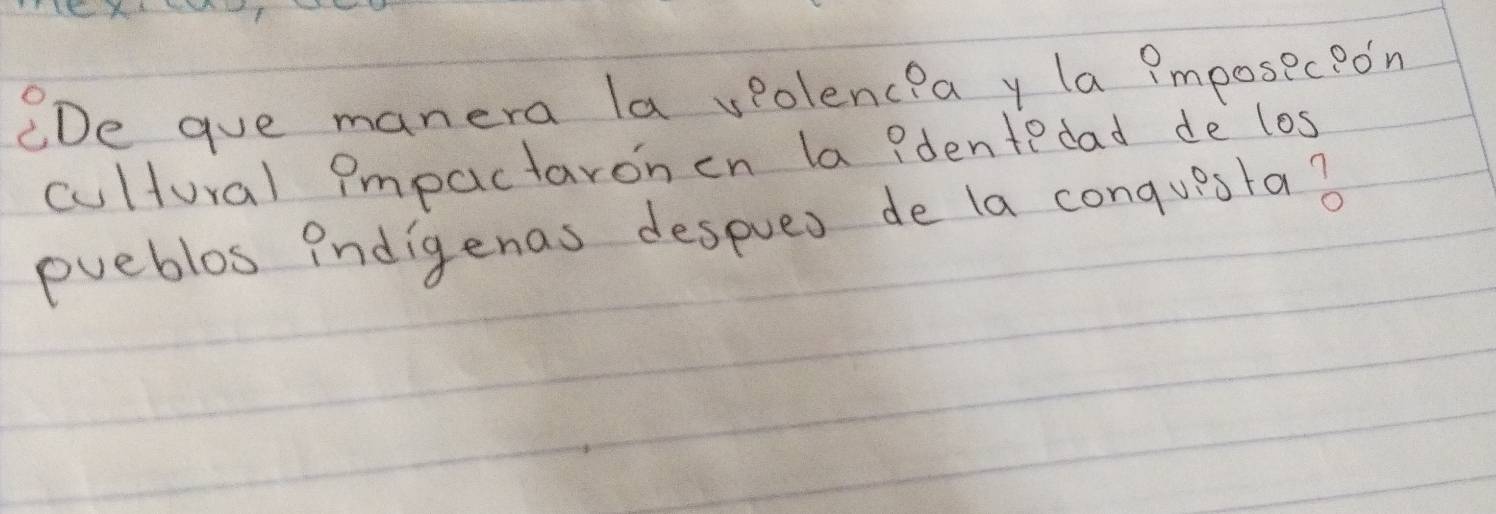 ¿De que manera la violencia y la imposición
cultural impactarón en la identidad de los
pueblos indígenas despues de la conquista?